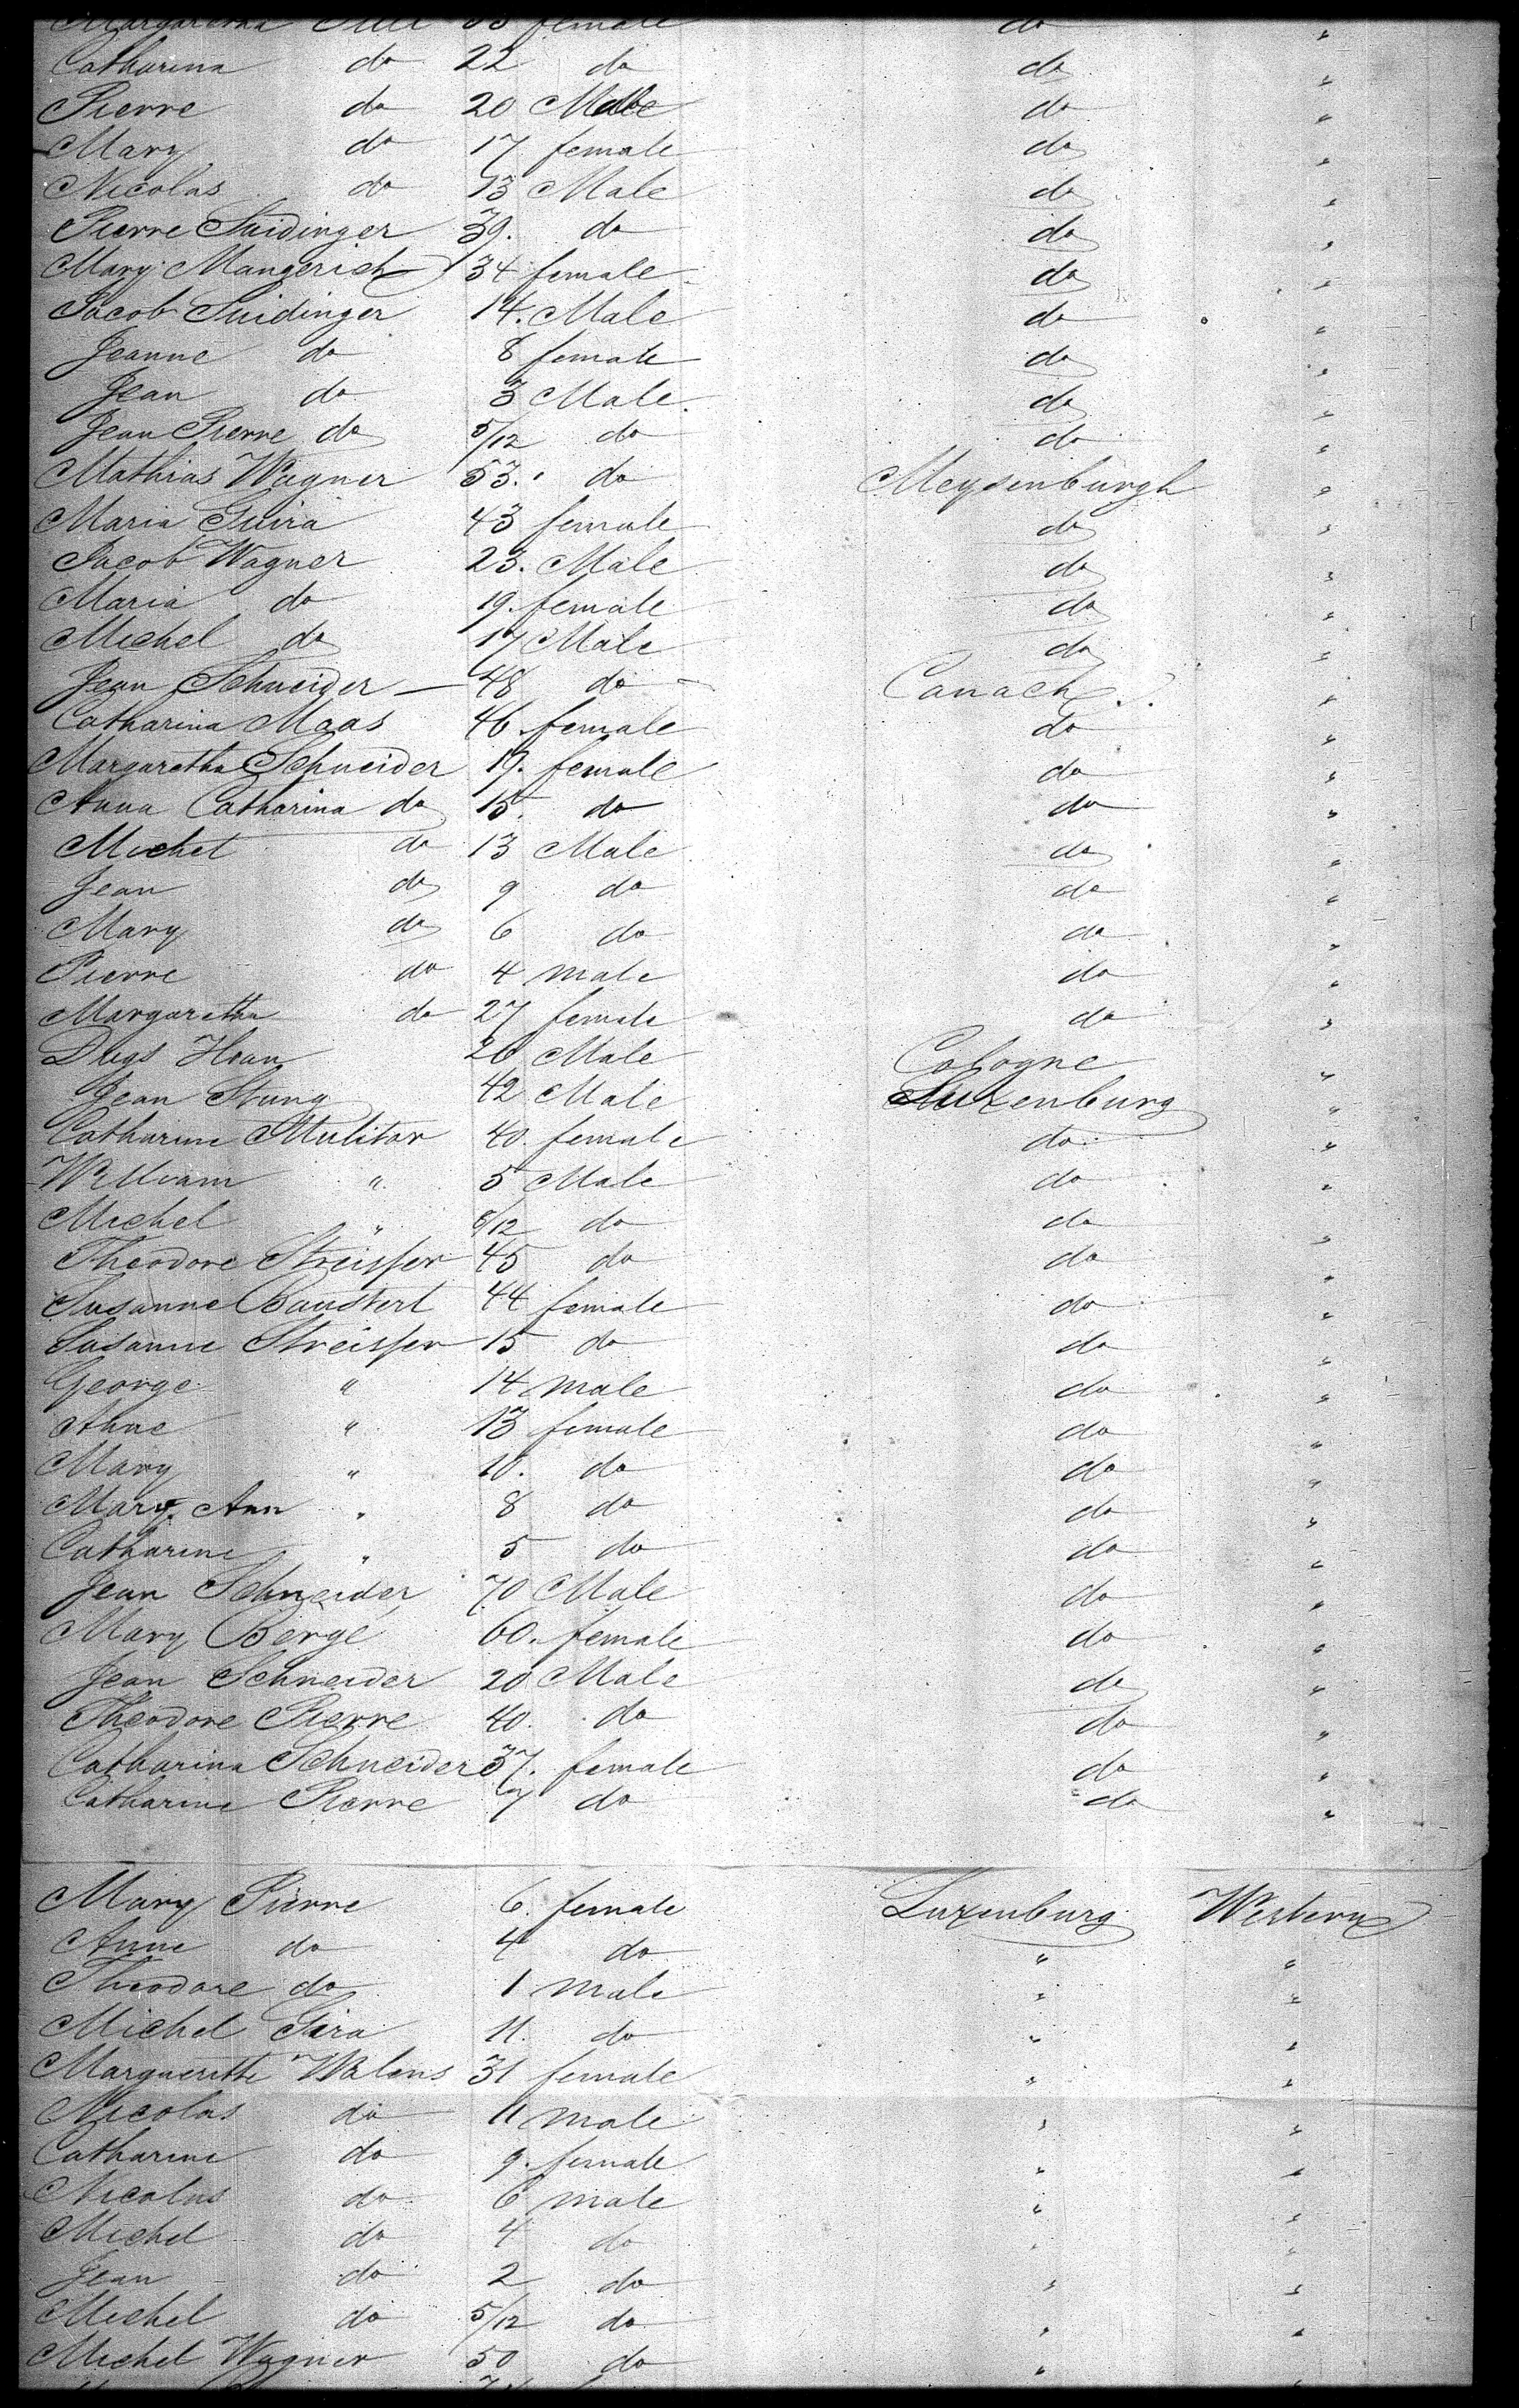 Margaretha 33 female do "
Catharina do 22 do do "
Pierre do 20 Male do "
Mary do 17 female do "
Nicolas do 13 Male do "
Pierre Suidinger 39. do do "
Mary Mangerich 34 female do "
Jacob Suidinger 14. Male do "
Jeanne do 8 female do "
Jean do 3 Male do "
Jean Pierre do 5/12 do do "
Mathias Wagner 53. do Meysenburgh "
Maria Guira 43 female do "
Jacob Wagner 23. Male do "
Maria do 19. female do "
Michel do 17 Male do "
Jean Schneider — 48 do Canach "
Catharina Maas 46. female do "
Margaretha Schneider 19. female do "
Anna Catharina do 15. do do "
Michel do 13 Male do "
Jean do 9 do do "
Mary do 6 do do "
Pierre do 4 male do "
Margaretha do 27 female do "
26 Male Cologne "
Jean Stung 42 Male Luxenburg "
Catharine Mulitor 40. female do "
William " 5 Male do "
Michel " 8/12 do do "
Theodore Streisser 45 do do "
Susanne Baustert 44 female do "
Susanne Streisser 15 do do "
George " 14 male do "
Anne " 13 female do "
Mary " 10. do do "
Mary Ann " 8 do do "
Catharine " 5 do do "
Jean Schneider 70 Male do "
Mary Berge 60. female do "
Jean Schneider 20 Male do "
Theodore Pierre 40. do do "
Catharina Schneider 37. female do "
Catharine Pierre 7 do do "
Mary Pierre 6. female Luxenburg Western
Anne do 4 do " "
Theodore do 1 male " "
Michel Gira 11. do " "
Marguerithe Walens 31 female " "
Nicolas do 11 male " "
Catharine do 9. female " "
Nicolas do 6 male " "
Michel do 4 do " "
Jean do 2 do " "
Michel do 5/12 do " "
Michel Wagner 50 do " "